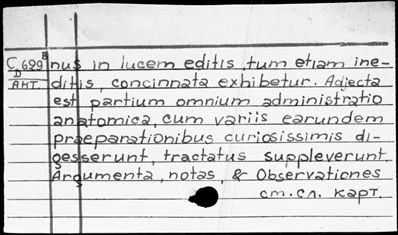 C 629 B nus in lucem editis, tum etiam ine-
D ditis, concinnata exhibetur. Adjecta
Ант. est partium omnium administratio
anatomica, cum variis earundem
praeparationibus curiosissimis di-
gesserunt, tractatus suppleverunt.
Argumenta, notas, & Observationes
см. сл. карт.